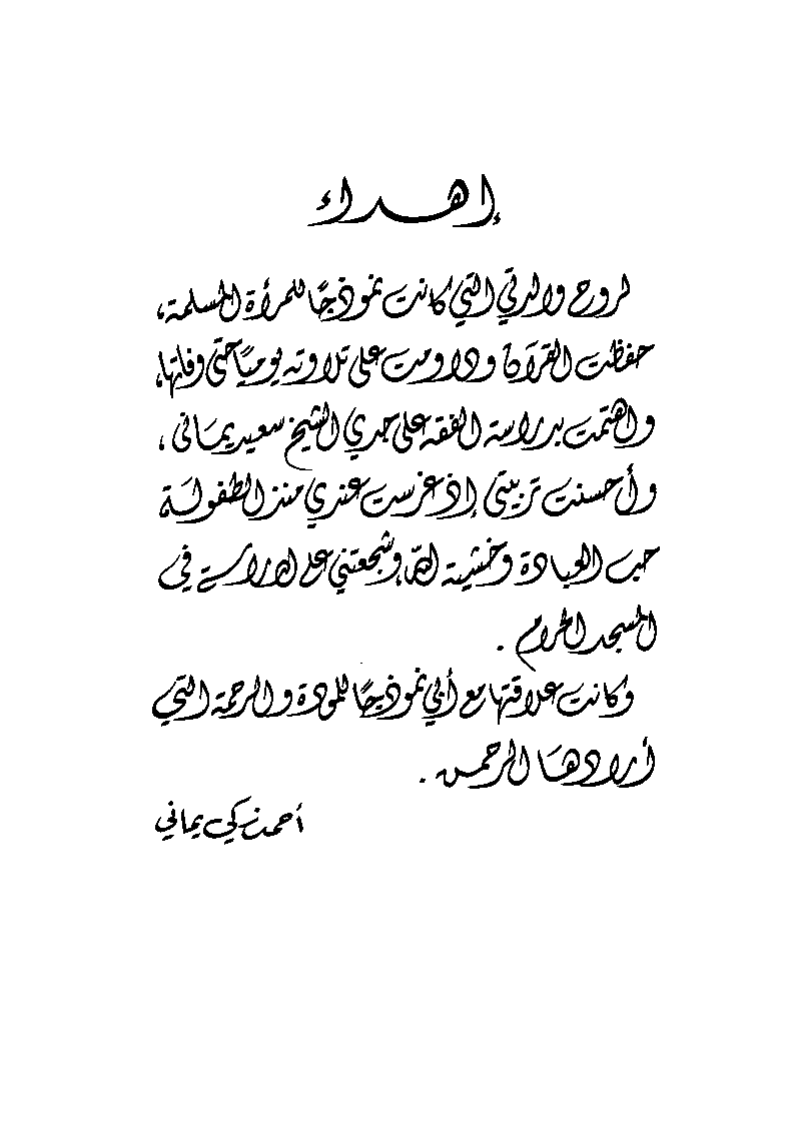 إهداء
لروح والدتي التي كانت نموذجًا للمرأة المسلمة،
حفظت القرآن وداومت على تلاوته يوميًا حتى وفاتها،
واهتمت بدراسة الفقه على جدي الشيخ سعيد يماني،
وأحسنت تربيتي إذ غرست عندي منذ الطفولة
حب العبادة وخشية الله، وشجعتني على الدراسة في
المسجد الحرام .
وكانت علاقتها مع أبي نموذجًا للمودة والرحمة التي
أرادها الرحمن .
أحمد زكي يماني